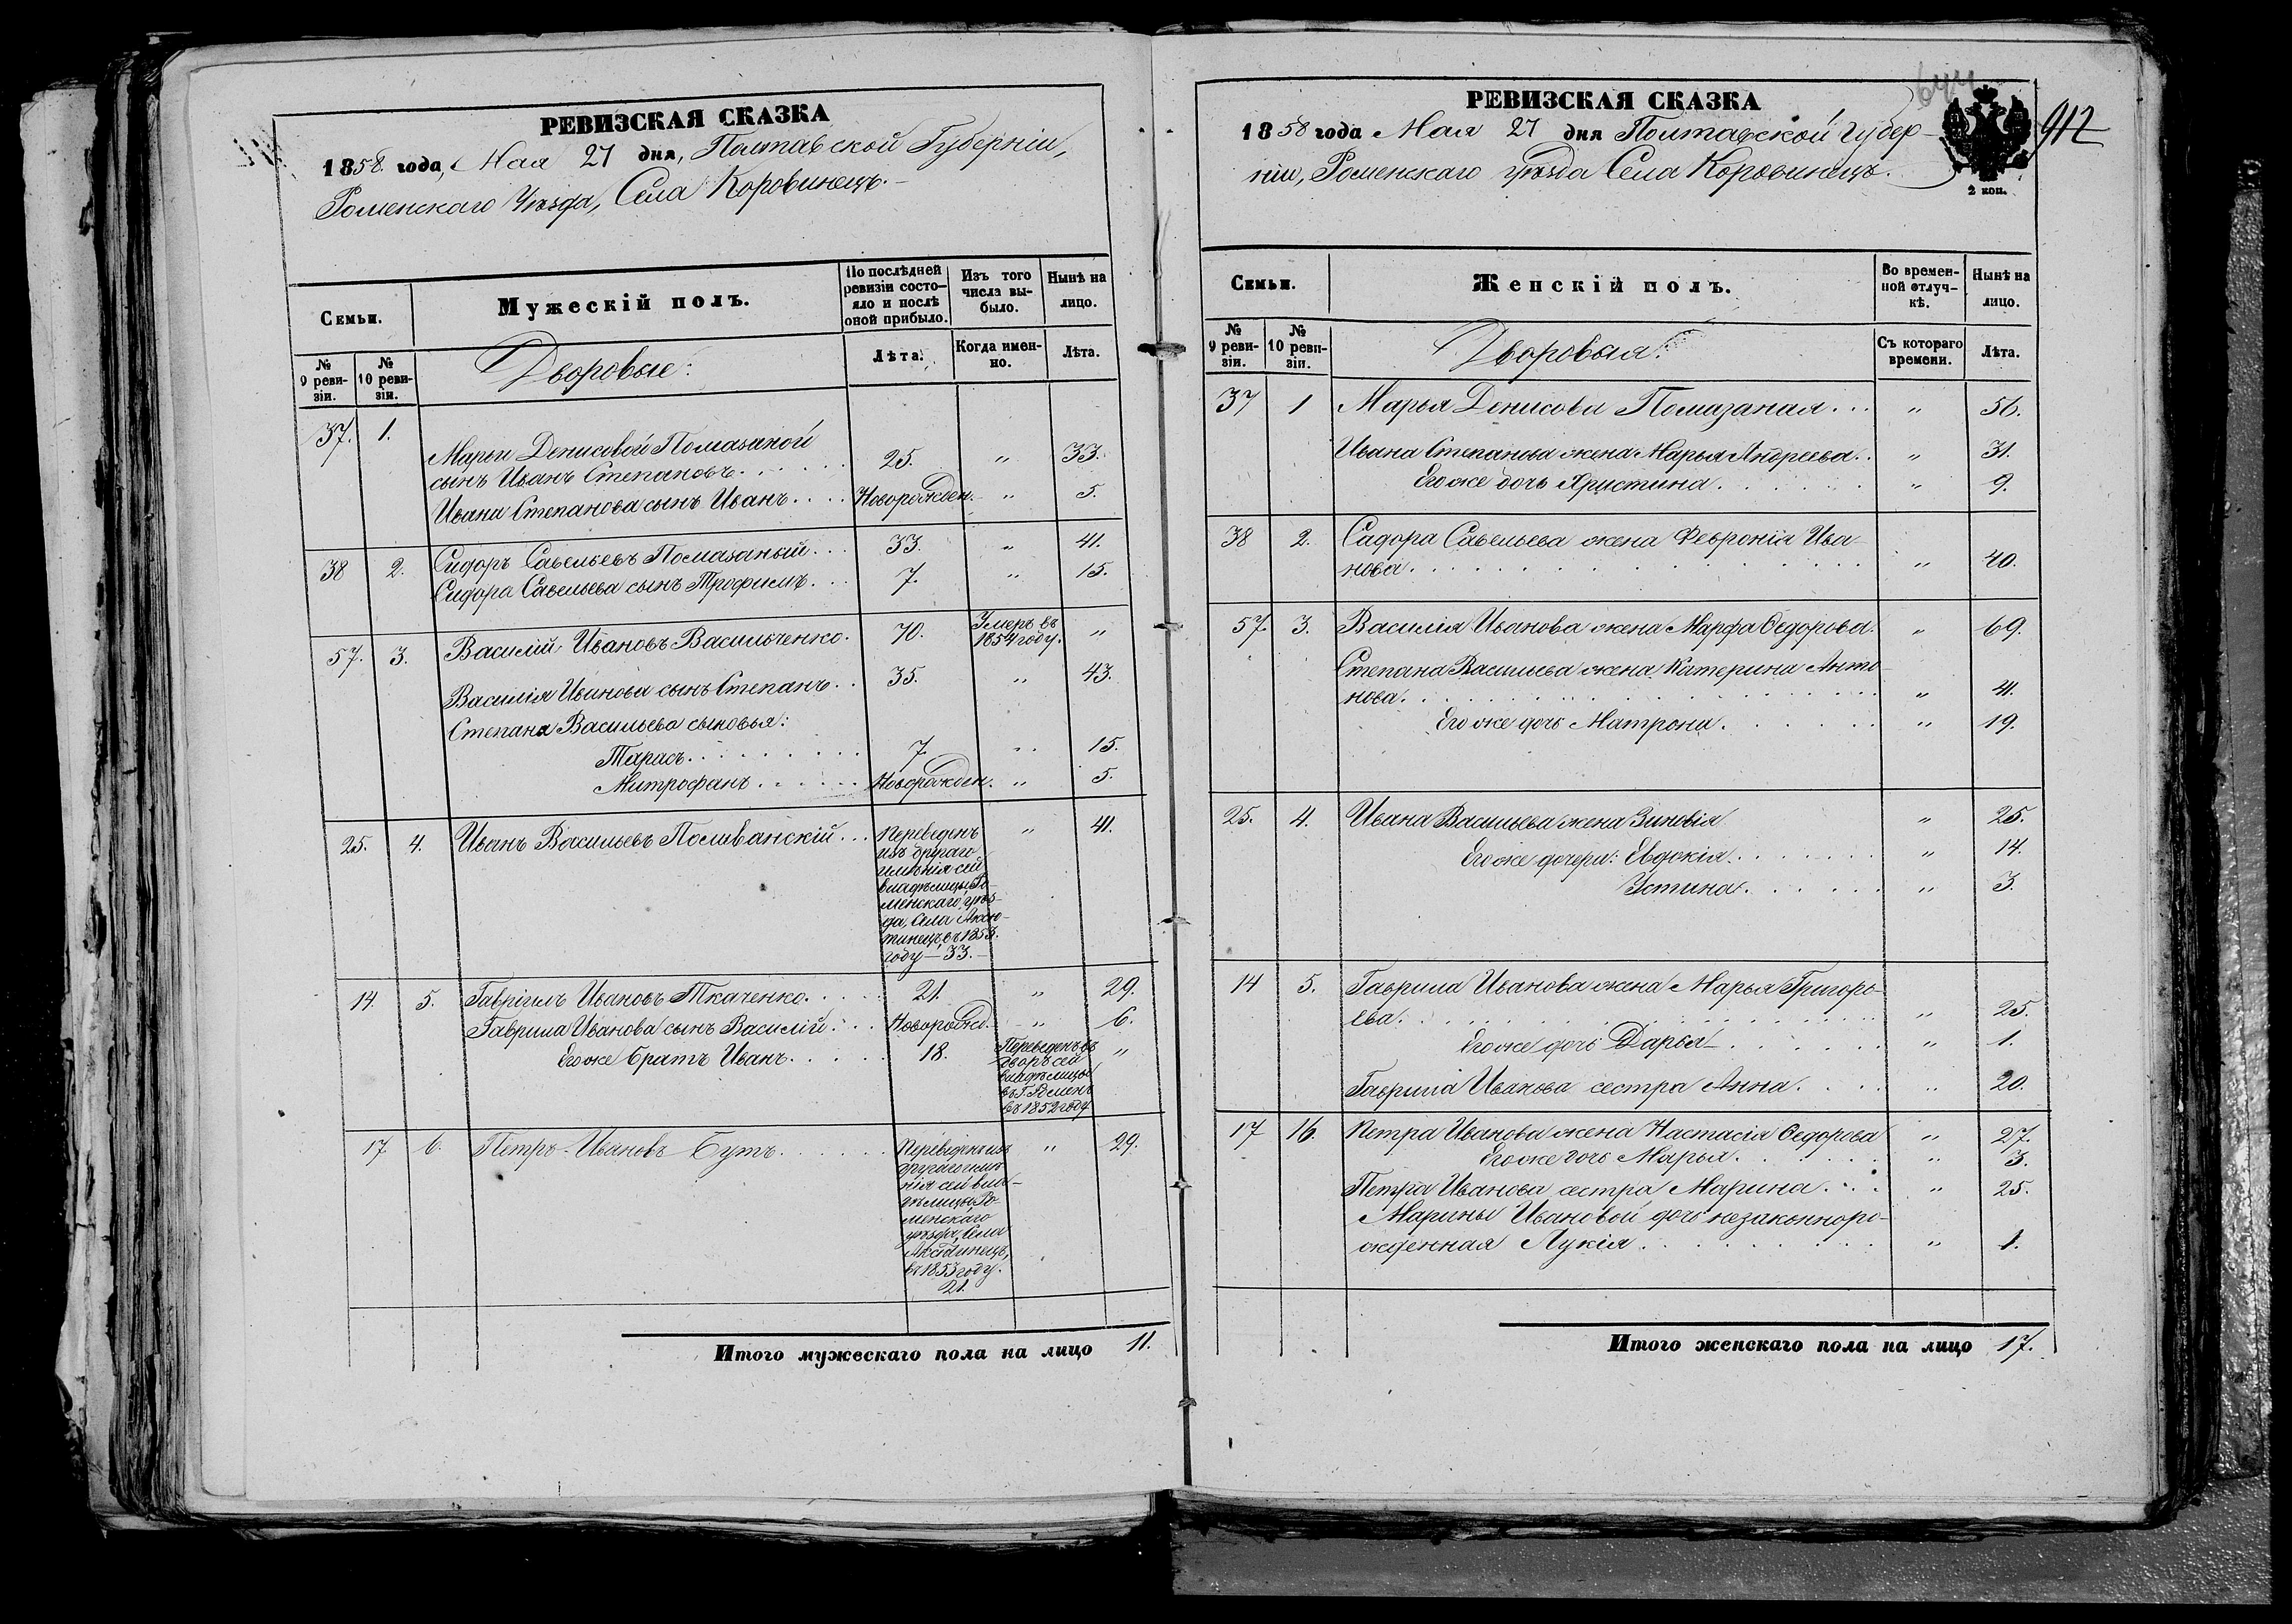 РЕВИЗСКАЯ СКАЗКА
1858 года, Мая 27 дня, Полтавской Губерніи,
Роменскаго Уѣзда, Села Коровинецъ.
Семьи.
Мужескій полъ.
По послѣдней ревизіи состояло и послѣ оной прибыло.
Изъ того числа выбыло.
Нынѣ на лицо.
№ 9 ревизіи.
№ 10 ревизіи.
Дворовые:
Лѣта.
Когда именно.
Лѣта.
37. 1.
Марьи Денисовой Помазаной
сынъ Иванъ Степановъ 25. " 33.
Ивана Степанова сынъ Иванъ Новорожден. " 5.
38 2. Сидоръ Савельевъ Помазаный 33. " 41.
Сидора Савельева сынъ Трофимъ 7. " 15.
57. 3. Василій Ивановъ Васильченко. 70. Умеръ въ 1854 году. "
Василія Иванова сынъ Степанъ 35. " 43.
Степана Васильева сыновья:
Тарасъ 7. " 15.
Митрофанъ Новорожден. " 5.
25. 4. Иванъ Васильевъ Поливанскій Переведенъ " 41.
изъ другаго
имѣнія сей
владѣлицы Ро-
менскаго уѣз-
да, Села Аксю-
тинецъ, въ 1853.
году — 33. —
14. 5. Гавріилъ Ивановъ Ткаченко 21. " 29.
Гаврила Иванова сынъ Василій Новорожд. " 6.
Его же братъ Иванъ 18. Переведенъ въ "
дворъ сей
владѣлицы
въ Г. Роменъ
въ 1852 году.
17. 6. Петръ Ивановъ Бутъ Переведенъ изъ " 29.
другаго имѣ-
нія сей вла-
дѣлицы Ро-
менскаго
уѣзда, Села
въ 1853 году.
21.
Итого мужескаго пола на лицо 11.
644
912
РЕВИЗСКАЯ СКАЗКА
1858 года Мая 27 дня Полтавской Губер-
ніи, Роменскаго уѣзда Села Коровинецъ.
2 коп.
Семьи.
Женскій полъ.
Во временной отлучкѣ.
Нынѣ на лицо.
№ 9 ревизіи.
№ 10 ревизіи.
Дворовыя:
Съ котораго времени.
Лѣта.
37 1 Марья Денисова Помазаная " 56.
Ивана Степанова жена Марья Андреева " 31.
Его же дочь Христина " 9.
38 2. Сидора Савельева жена Февронія Ива-
нова " 40.
57. 3. Василія Иванова жена Марфа Ѳедорова. " 69.
Степана Васильева жена Катерина Анто-
нова " 41.
Его же дочь Матрона " 19.
25. 4. Ивана Васильева жена Зиновія " 25.
Его же дочери: Евдокія " 14.
Устина " 3.
14 5. Гаврила Иванова жена Марья Григорь-
ева " 25.
Его же дочь Дарья " 1.
Гаврила Иванова сестра Анна " 20.
17 16. Петра Иванова жена Настасія Ѳедорова " 27.
Его же дочь Марья " 3.
Петра Иванова сестра Марина " 25.
Марины Ивановой дочь незаконноро-
жденная Лукія " 1.
Итого женскаго пола на лицо 17.